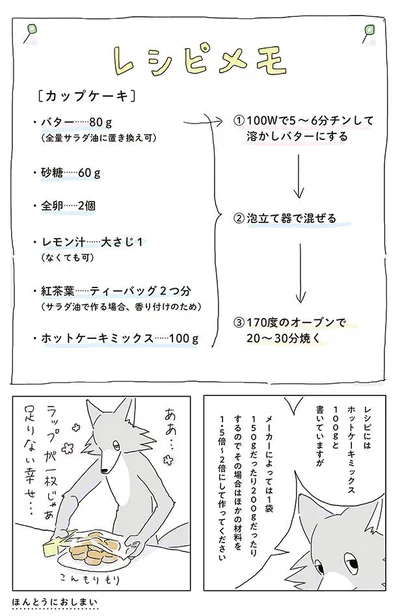 レシピメモ
［カップケーキ］
・バター……80g
（全量サラダ油に置き換え可）
・砂糖……60g
・全卵……2個
・レモン汁……大さじ1
（なくても可）
・紅茶葉……ティーバッグ2つ分
（サラダ油で作る場合、香り付けのため）
・ホットケーキミックス……100g
①100Wで5〜6分チンして
溶かしバターにする
②泡立て器で混ぜる
③170度のオーブンで
20〜30分焼く
レシピには
ホットケーキミックス
100gと
書いていますが
メーカーによっては1袋
150gだったり200gだったり
するので その場合はほかの材料を
1.5倍〜2倍にして作ってください
ああ…
ラップが一枚じゃあ
足りない幸せ…
こんもりもり
ほんとうにおしまい